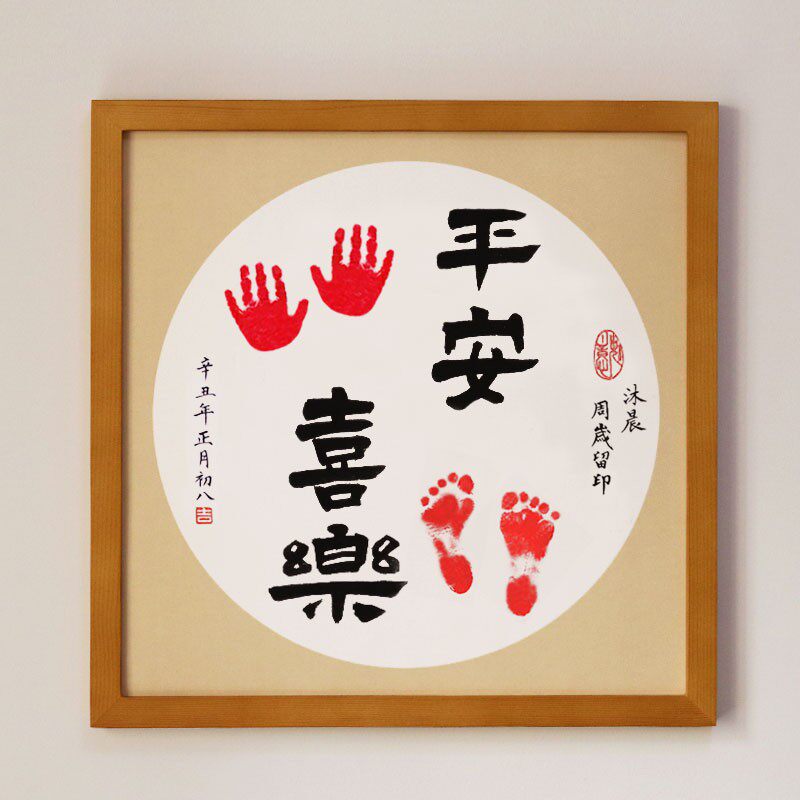 平安
喜樂
沐晨
周歲留印
辛丑年正月初八
吉